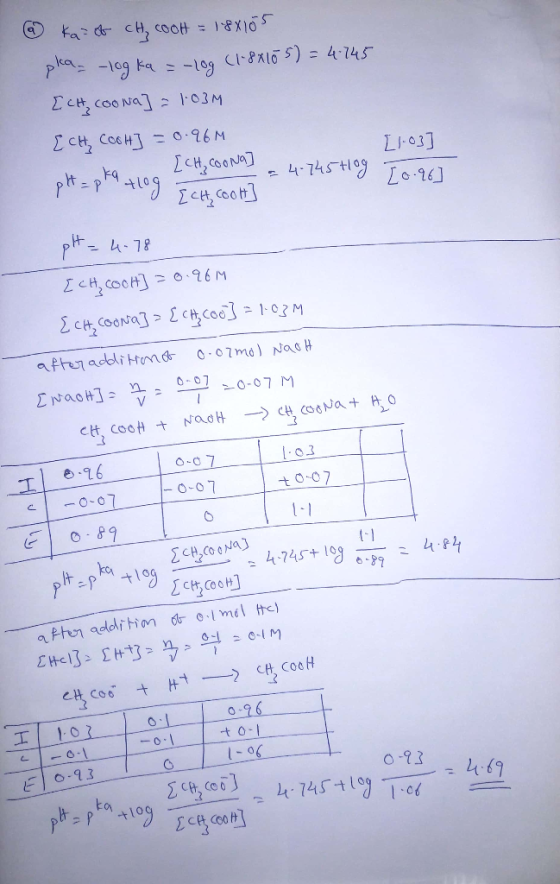 (a) Ka = of CH3 COOH = 1.8×10^-5
pKa = -log Ka = -log (1.8×10^-5) = 4.745
[CH3 COONa] = 1.03M
[CH3 COOH] = 0.96M
pH = pKa + log [CH3COONa] / [CH3COOH] = 4.745 + log [1.03] / [0.96]
pH = 4.78
[CH3COOH] = 0.96M
[CH3COONa] = [CH3COO-] = 1.03M
after addition of 0.07mol NaOH
[NaOH] = n/V = 0.07/1 = 0.07 M
CH3COOH + NaOH → CH3COONa + H2O
I 0.96 0.07 1.03
C -0.07 -0.07 +0.07
E 0.89 0 1.1
pH = pKa + log [CH3COONa] / [CH3COOH] = 4.745 + log 1.1 / 0.89 = 4.84
after addition of 0.1 mol HCl
[HCl] = [H+] = n/V = 0.1/1 = 0.1M
CH3COO- + H+ → CH3COOH
I 1.03 0.1 0.96
C -0.1 -0.1 +0.1
E 0.93 0 1.06
pH = pKa + log [CH3COO-] / [CH3COOH] = 4.745 + log 0.93 / 1.06 = 4.69